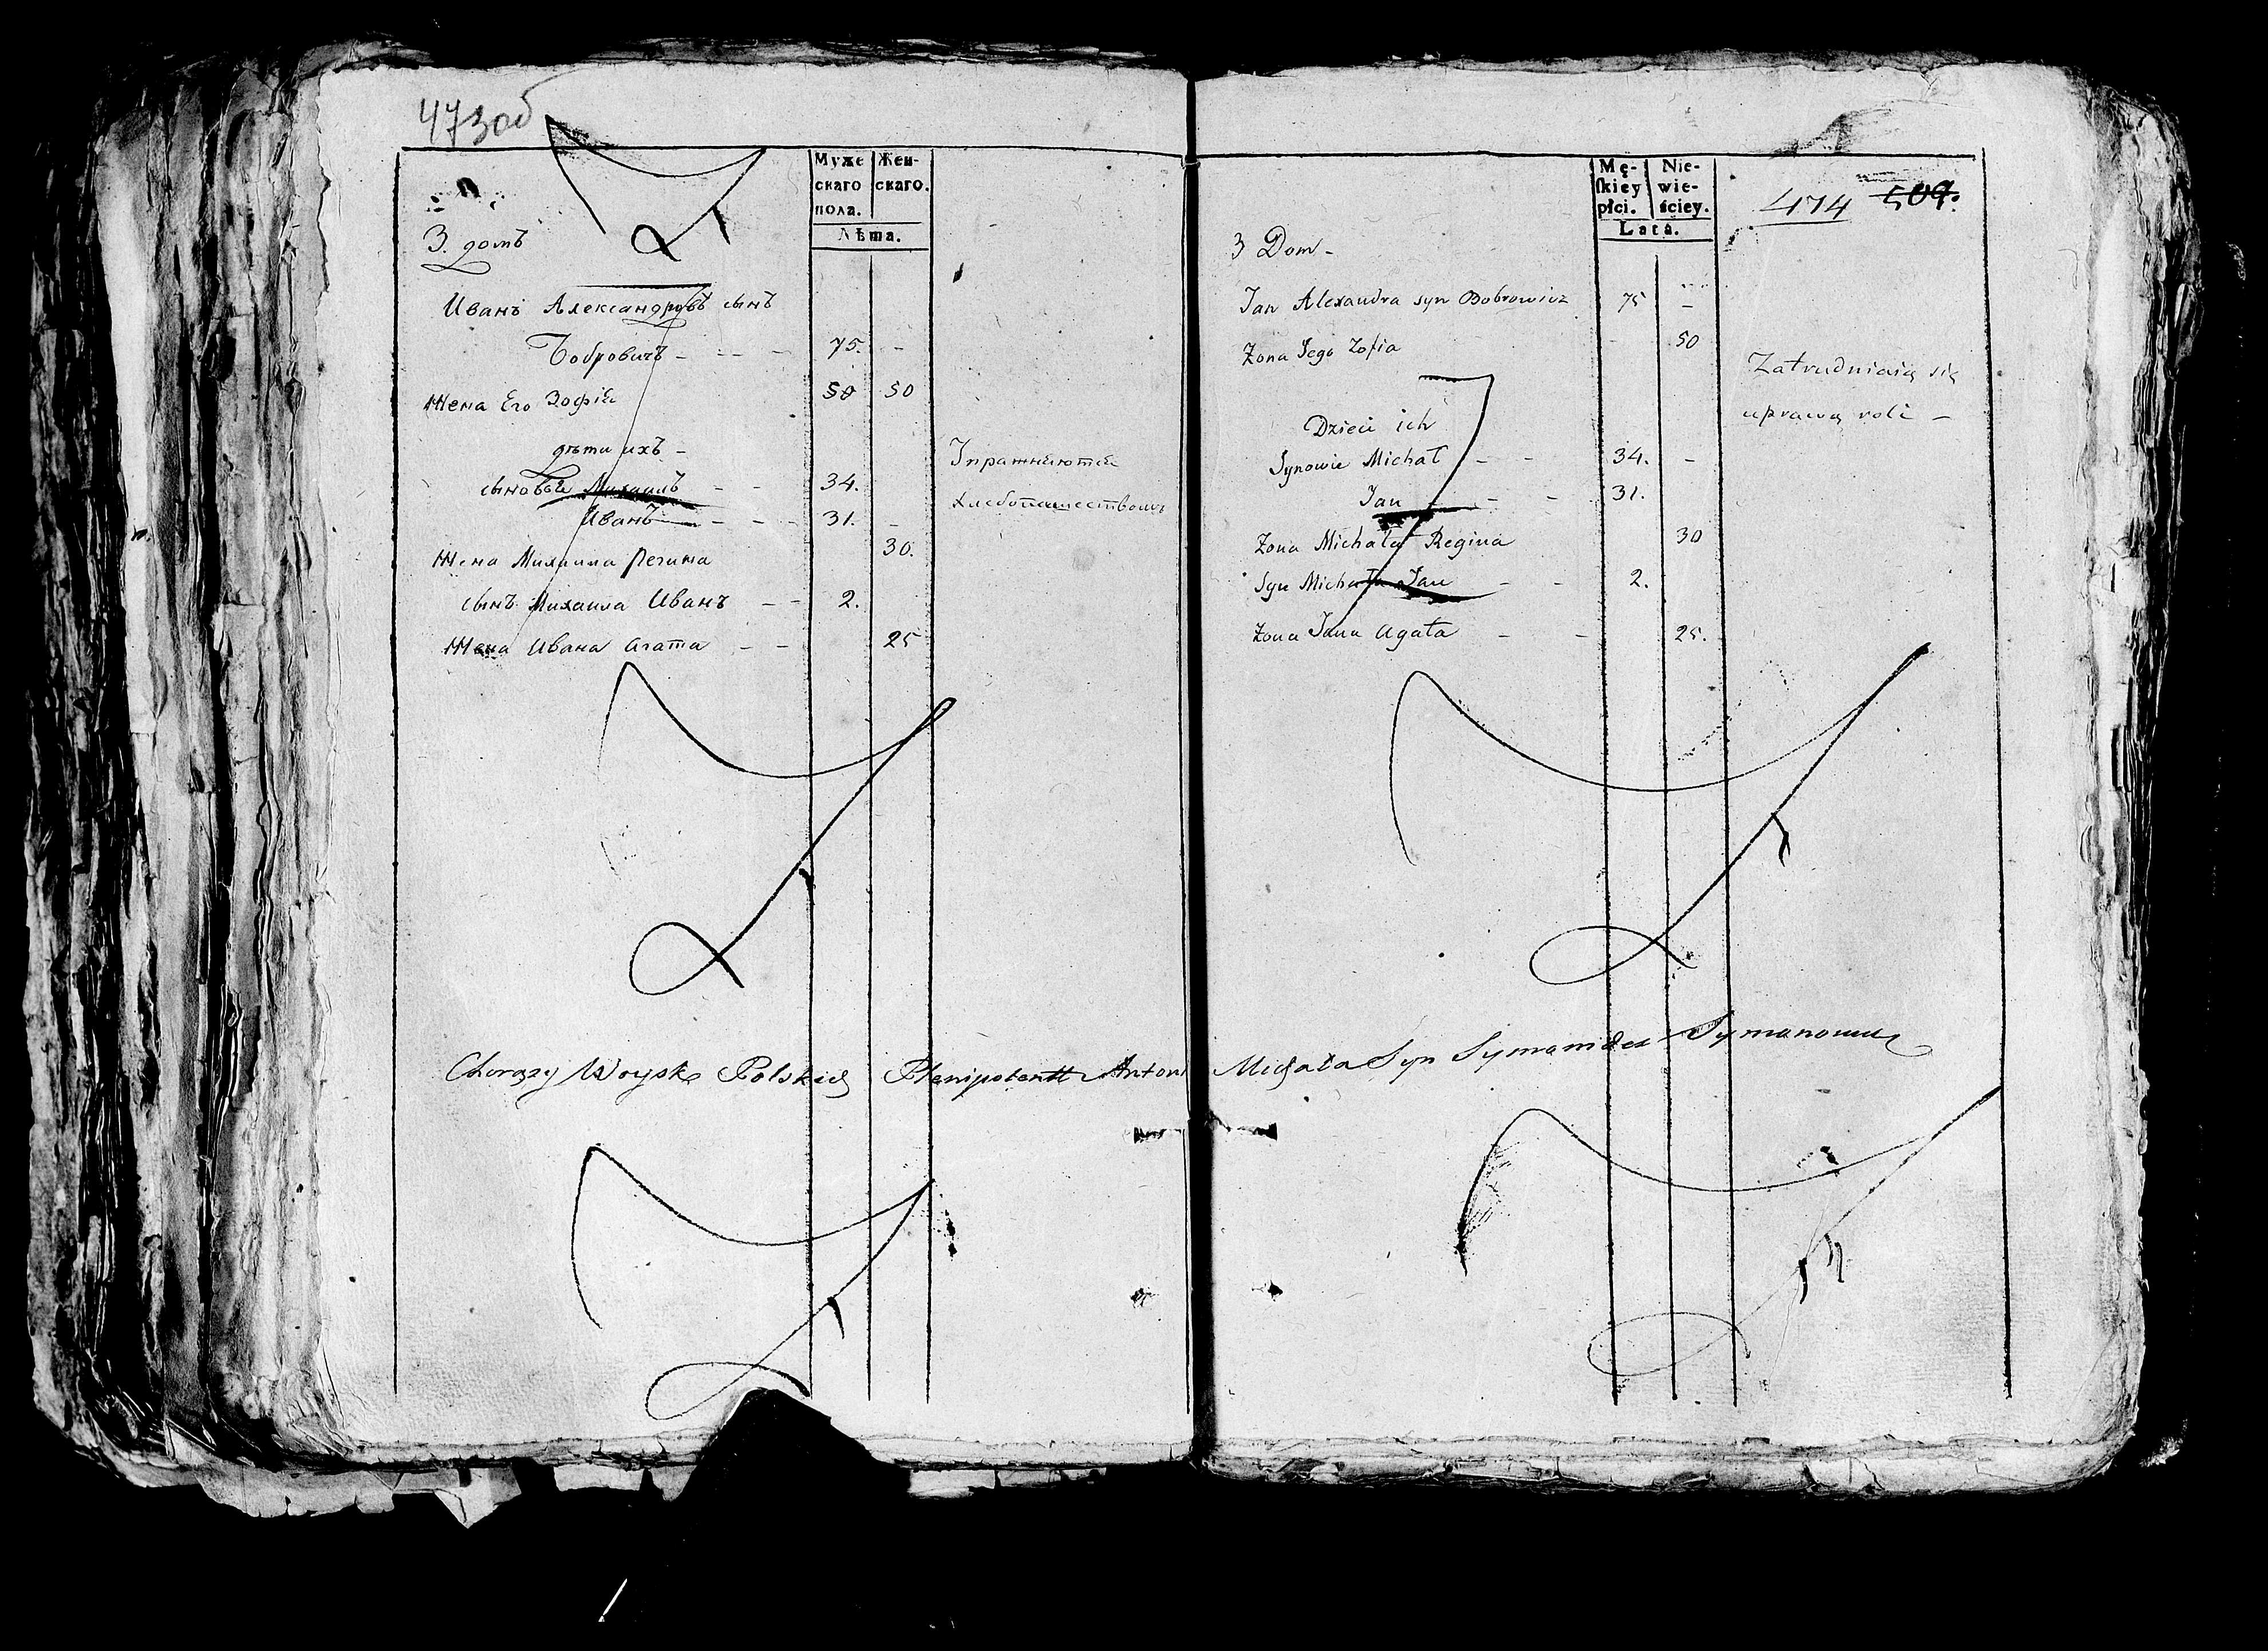 473об
Муже
скаго
пола.
Жен-
скаго.
Лѣта.
3. домъ
Иванъ Александровъ сынъ
Бобровичъ - -- - 75. -
Жена Его Зофія 50 50
дѣти ихъ -
сыновья Михаилъ - - 34.
Иванъ - - - 31. -
Жена Михаила Регина 30.
сынъ Михаила Иванъ - - 2.
Жена Ивана Агата - - 25
Упражняются
хлебопашествомъ
Mę-
skiey
płci.
Nie-
wie-
ściey.
Lata.
474 509.
3 Dom -
Jan Alexandra syn Bobrowicz 75 -
Żona Jego Zofia - 50
Dzieci ich
Synowie Michał - - 34. -
Jan - - - 31.
Żona Michała Regina 30
Syn Michała Jan - - 2.
Żona Jana Agata - - 25.
Zatrudniaią się
uprawą roli -
Chorąży Woysk Polskich Plenipotent Antoni Michała Syn Symanowicz